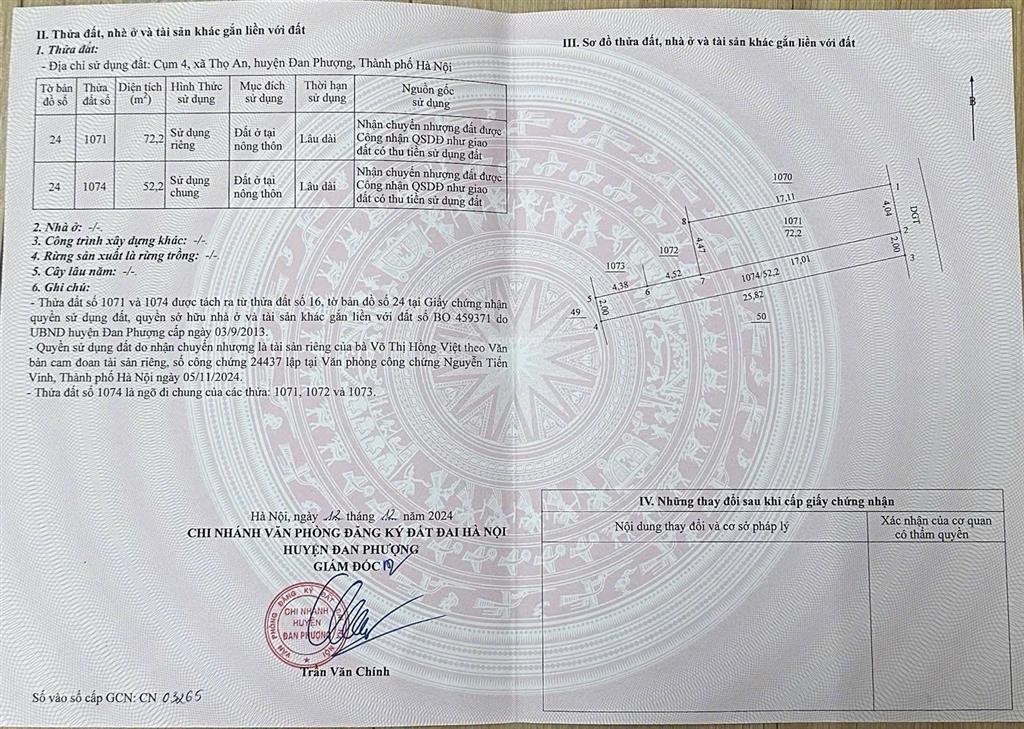 II. Thửa đất, nhà ở và tài sản khác gắn liền với đất
1. Thửa đất:
- Địa chỉ sử dụng đất: Cụm 4, xã Thọ An, huyện Đan Phượng, Thành phố Hà Nội
Tờ bản đồ số | Thửa đất số | Diện tích (m²) | Hình Thức sử dụng | Mục đích sử dụng | Thời hạn sử dụng | Nguồn gốc sử dụng
24 | 1071 | 72,2 | Sử dụng riêng | Đất ở tại nông thôn | Lâu dài | Nhận chuyển nhượng đất được Công nhận QSDĐ như giao đất có thu tiền sử dụng đất
24 | 1074 | 52,2 | Sử dụng chung | Đất ở tại nông thôn | Lâu dài | Nhận chuyển nhượng đất được Công nhận QSDĐ như giao đất có thu tiền sử dụng đất
2. Nhà ở: -/-.
3. Công trình xây dựng khác: -/-.
4. Rừng sản xuất là rừng trồng: -/-.
5. Cây lâu năm: -/-.
6. Ghi chú:
- Thửa đất số 1071 và 1074 được tách ra từ thửa đất số 16, tờ bản đồ số 24 tại Giấy chứng nhận
quyền sử dụng đất, quyền sở hữu nhà ở và tài sản khác gắn liền với đất số BO 459371 do
UBND huyện Đan Phượng cấp ngày 03/9/2013.
- Quyền sử dụng đất do nhận chuyển nhượng là tài sản riêng của bà Võ Thị Hồng Việt theo Văn
bản cam đoan tài sản riêng, số công chứng 24437 lập tại Văn phòng công chứng Nguyễn Tiến
Vinh, Thành phố Hà Nội ngày 05/11/2024.
- Thửa đất số 1074 là ngõ đi chung của các thửa: 1071, 1072 và 1073.
Hà Nội, ngày 12 tháng 12 năm 2024
CHI NHÁNH VĂN PHÒNG ĐĂNG KÝ ĐẤT ĐAI HÀ NỘI
HUYỆN ĐAN PHƯỢNG
GIÁM ĐỐC
VĂN PHÒNG ĐĂNG KÝ ĐẤT ĐAI HÀ NỘI
CHI NHÁNH
HUYỆN
ĐAN PHƯỢNG
Trần Văn Chính
Số vào sổ cấp GCN: CN 03265
III. Sơ đồ thửa đất, nhà ở và tài sản khác gắn liền với đất
B
1070
17,11
1
8
1071
72,2
4,04
ĐGT
4,47
2
1072
2,00
17,01
3
1073
4,52
7
1074/52,2
4,38
6
25,82
5
2,00
49
4
50
IV. Những thay đổi sau khi cấp giấy chứng nhận
Nội dung thay đổi và cơ sở pháp lý | Xác nhận của cơ quan có thẩm quyền